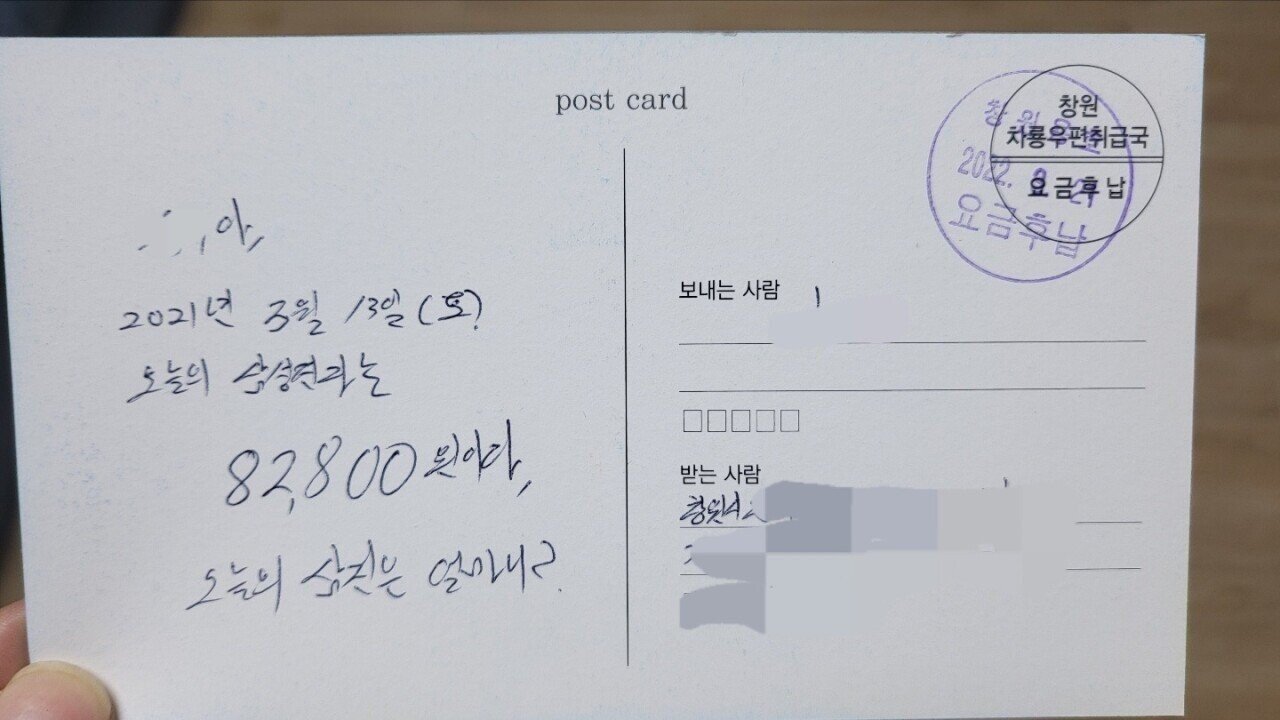 post card
아,
2021년 3월 13일(토)
오늘의 삼성전자는
82,800원이다,
오늘의 삼전은 얼마니?
창원
차룡우편취급국
요금후납
창원우편
2022.
요금후납
보내는 사람
받는 사람
창원시